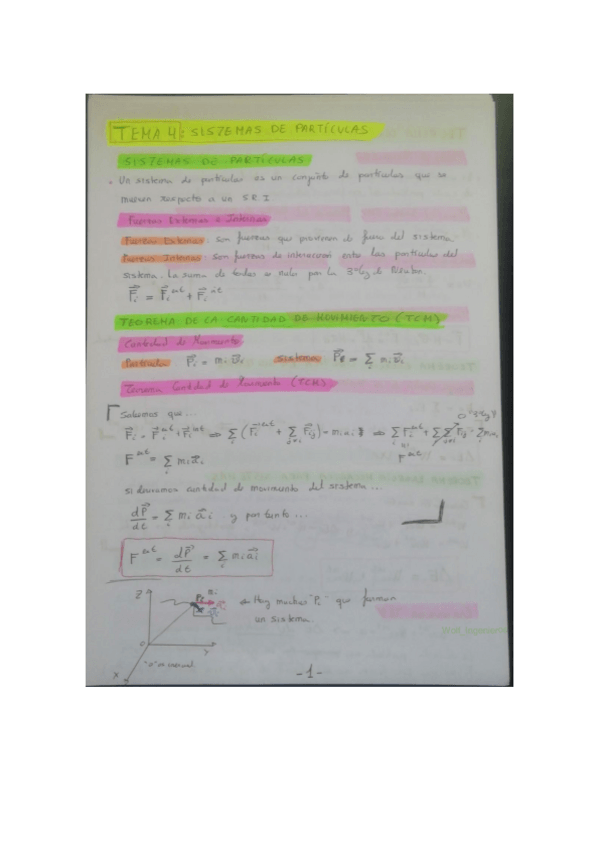 TEMA 4: SISTEMAS DE PARTÍCULAS
SISTEMAS DE PARTÍCULAS
Un sistema de partículas es un conjunto de partículas que se
mueven respecto a un S.R.I
Fuerzas Externas e Internas
Fuerzas Externas: Son fuerzas que provienen de fuera del sistema
Fuerzas Internas: Son fuerzas de interacción entre las partículas del
sistema. La suma de todas es nula por la 3ª ley de Newton.
F⃗i = F⃗i^ext + F⃗i^int
TEOREMA DE LA CANTIDAD DE MOVIMIENTO (TCM)
Cantidad de Movimiento
Partícula P⃗i = mi v⃗i sistema P⃗ = Σi mi v⃗i
Teorema Cantidad de Movimiento (TCM)
Sabemos que...
F⃗i = F⃗i^ext + F⃗i^int ⇒ Σi (F⃗i^ext + Σj≠i F⃗ij) = mi ai ⇒ Σi F⃗i^ext + ΣΣ F⃗ij = Σ mi ai
F^ext = Σi mi a⃗i F^ext
si derivamos cantidad de movimiento del sistema...
dP⃗/dt = Σi mi a⃗i y por tanto...
F^ext = dP⃗/dt = Σi mi a⃗i
Z Pi mi ← Hay muchas "Pi" que forman
un sistema.
O Y
X "O" es inercial
-1-